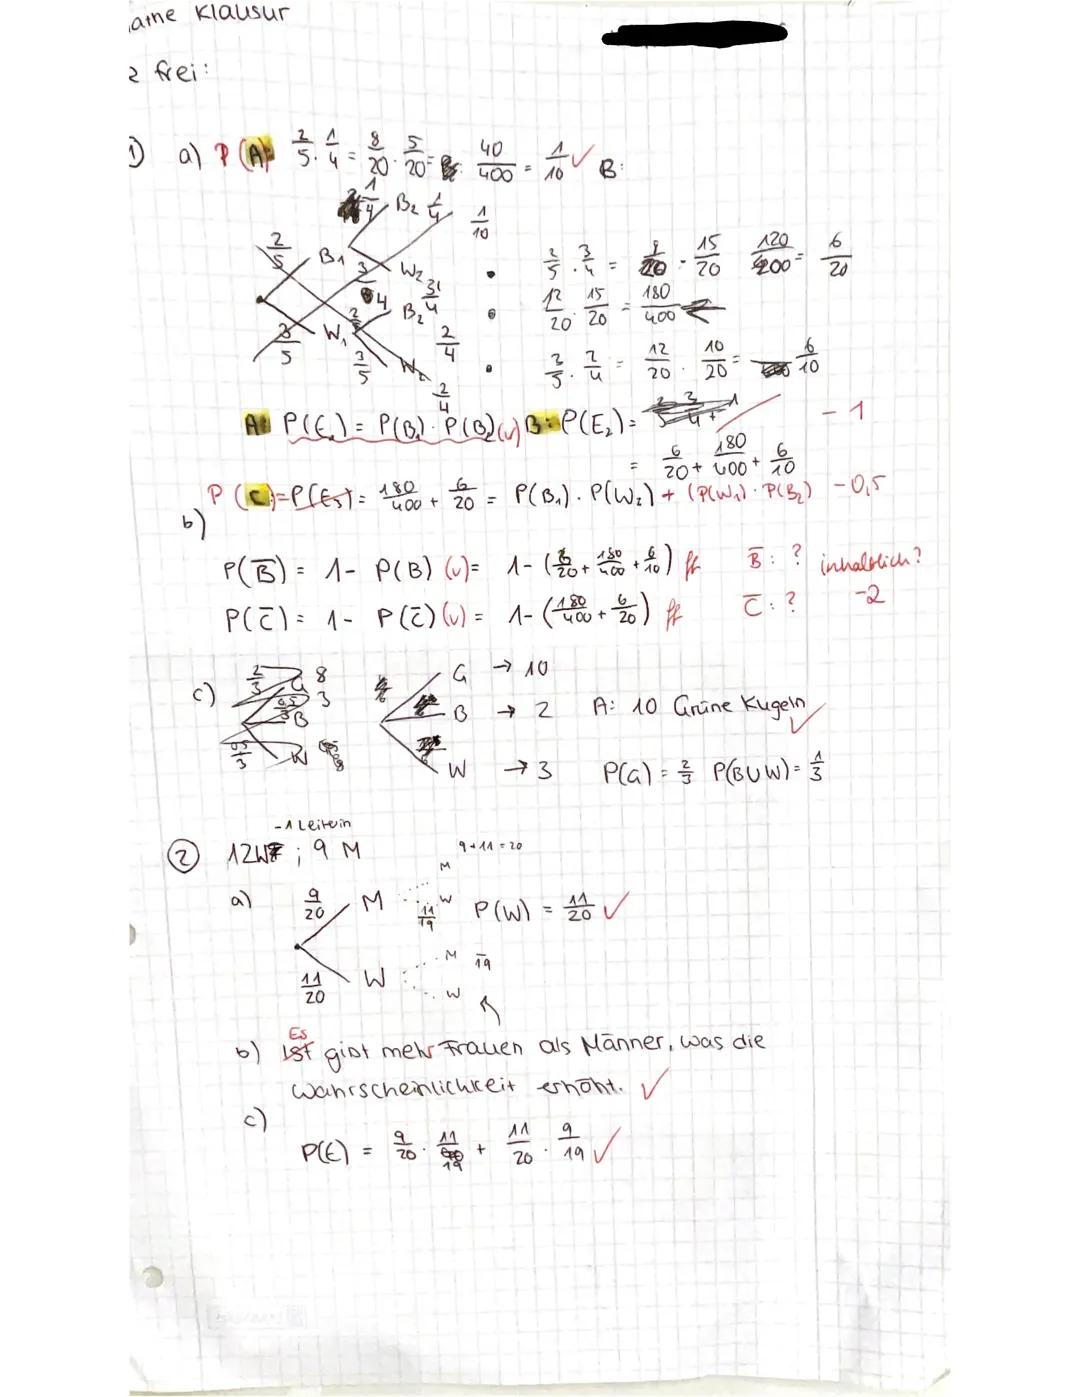 Klausur
2 frei:
1) a) P(A): 2/5 · 1/4 = 8/20 · 5/20 = 40/400 = 1/10 ✓ B:
1/4 B2 1/4 1/10
2/5 B1 3/4 W2 3/4
2/5 · 3/4 = · 15/20 120/400 = 6/20
3/5 W1 B2 2/4
12/20 · 15/20 = 180/400
3/5 W2 2/4
3/5 · 2/4 = 12/20 · 10/20 = 6/10
A: P(E1) = P(B1) · P(B2) (v) B: P(E2) = -1
= 6/20 + 180/400 + 6/10
P(C) = P(E3) = 180/400 + 6/20 = P(B1) · P(W2) + (P(W1) · P(B2) -0,5
b)
P(B̅) = 1 - P(B) (v) = 1 - (6/20 + 180/400 + 6/10) ff B̅: ? inhaltlich?
P(C̅) = 1 - P(C̅) (v) = 1 - (180/400 + 6/20) ff C̅: ? -2
c) 2/3 G 8 G → 10
0,5/3 B 3 B → 2 A: 10 Grüne Kugeln ✓
0,5/3 W W → 3 P(G) = 2/3 P(B∪W) = 1/3
-1 Leiterin
2 12W ; 9 M 9+11=20
a) 9/20 M M W 11/19 P(W) = 11/20 ✓
11/20 W M W 19
Es
b) Ist gibt mehr Frauen als Männer, was die
Wahrscheinlichkeit erhöht. ✓
c)
P(E) = 9/20 · 11/19 + 11/20 · 9/19 ✓